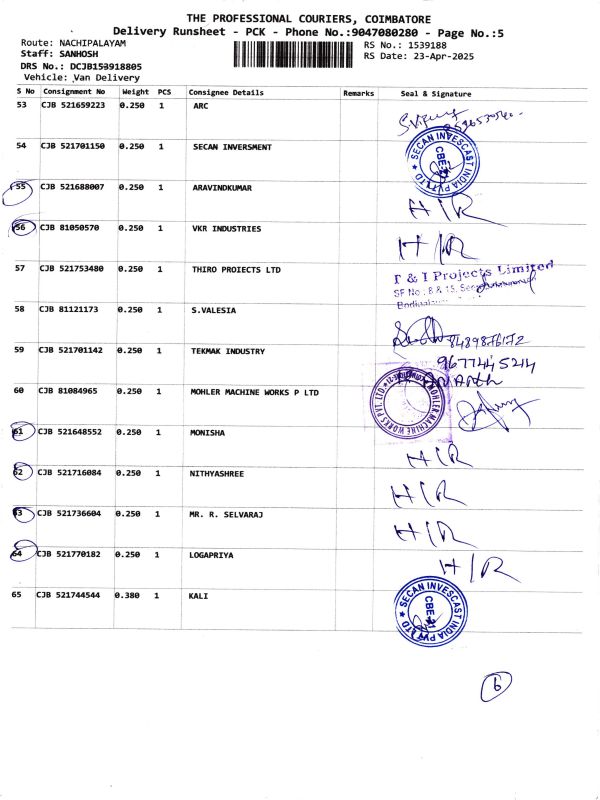 THE PROFESSIONAL COURIERS, COIMBATORE
Delivery Runsheet - PCK - Phone No.:9047080280 - Page No.:5
Route: NACHIPALAYAM
Staff: SANHOSH
DRS No.: DCJB153918805
Vehicle: Van Delivery
RS No.: 1539188
RS Date: 23-Apr-2025
S No Consignment No Weight PCS Consignee Details Remarks Seal & Signature
53 CJB 521659223 0.250 1 ARC
54 CJB 521701150 0.250 1 SECAN INVERSMENT
SECAN INVESCAST INDIA PVT LTD CBE-21
55 CJB 521688007 0.250 1 ARAVINDKUMAR H/R
56 CJB 81050570 0.250 1 VKR INDUSTRIES H/R
57 CJB 521753480 0.250 1 THIRO PROJECTS LTD
T & I Projects Limited
SF No : 8 & 15,
58 CJB 81121173 0.250 1 S.VALESIA
8489876172
59 CJB 521701142 0.250 1 TEKMAK INDUSTRY
9677445214
60 CJB 81084965 0.250 1 MOHLER MACHINE WORKS P LTD
MOHLER MACHINE WORKS PVT. LTD.
61 CJB 521648552 0.250 1 MONISHA H/R
62 CJB 521716084 0.250 1 NITHYASHREE H/R
63 CJB 521736604 0.250 1 MR. R. SELVARAJ H/R
64 CJB 521770182 0.250 1 LOGAPRIYA H/R
65 CJB 521744544 0.380 1 KALI
SECAN INVESCAST INDIA PVT LTD CBE-21
6